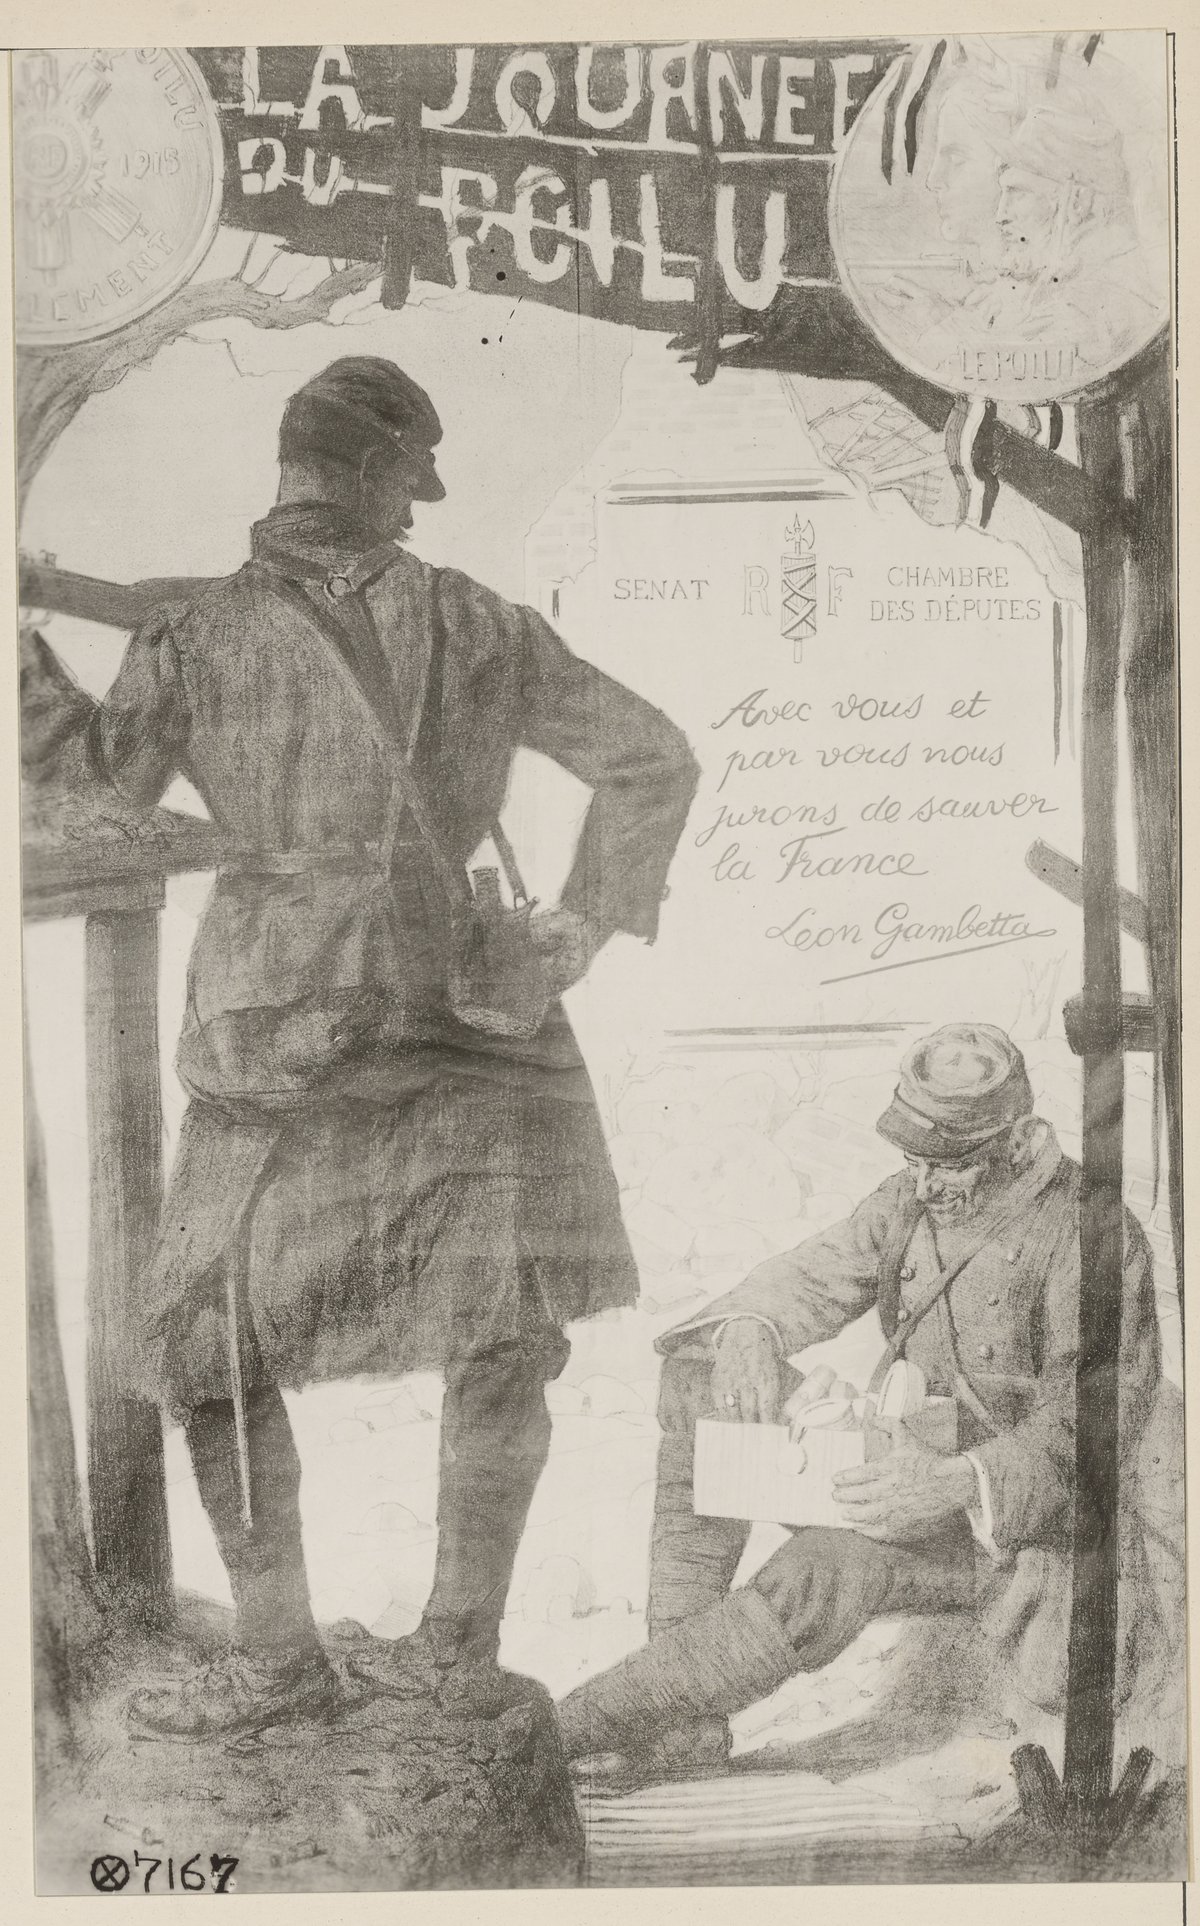 LA JOURNÉE
DU POILU
POILU
1915
LE POILU
SENAT R F CHAMBRE
DES DÉPUTES
Avec vous et
par vous nous
jurons de sauver
la France
Leon Gambetta
7167